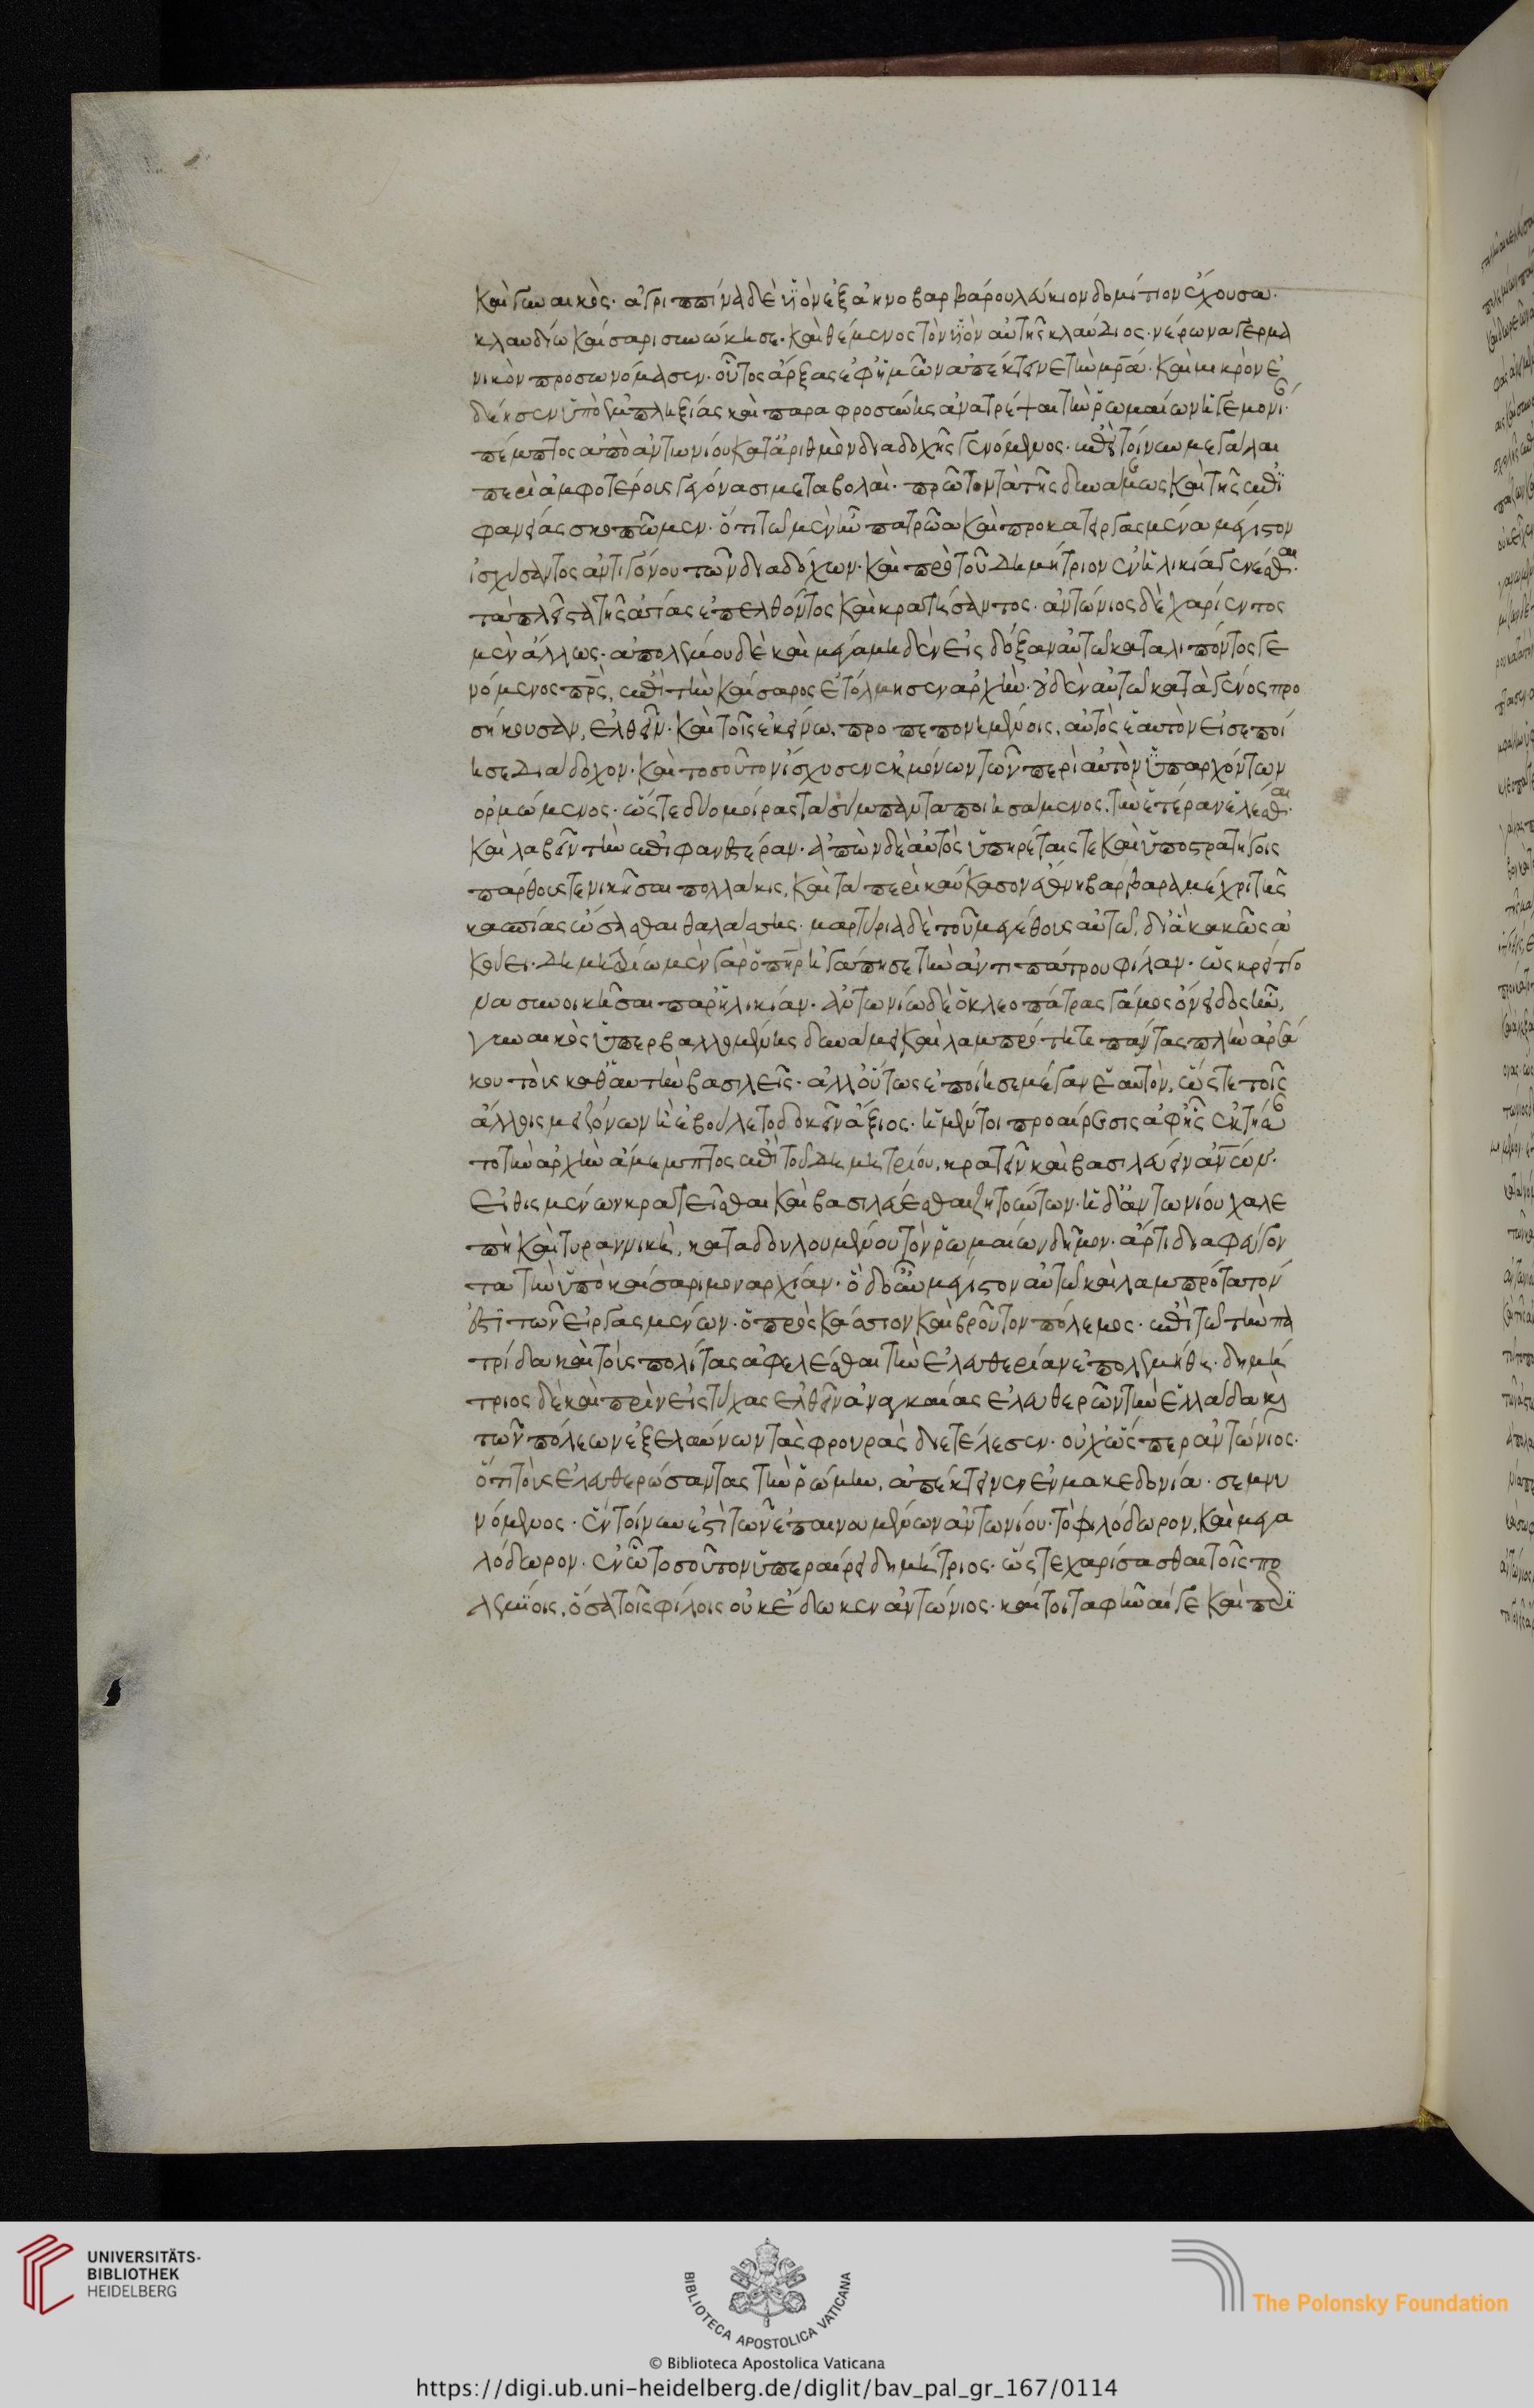 καὶ γυναικός· ἀγριππίνα δὲ υἱὸν ἐξ ἀηνοβαρβάρου λεύκιον δομίτιον ἔχουσα·
κλαυδίω καίσαρι συνώκησε· καὶ θέμενος τὸν υἱὸν αὐτῆς κλαύδιος· νέρωνα γερμα
νικὸν προσωνόμασεν· οὗτος ἄρξας ἐφ' ἡμῶν ἀπέκτεινε τὴν μρ̅α· καὶ μικρὸν ἐ
δέησεν ὑπὸ ἐμπληξίας καὶ παραφροσύνης ἀνατρέψαι τὴν ῥωμαίων ἡγεμονί·
πέμπτος ἀπὸ ἀντωνίου κατ' ἀριθμὸν διαδοχῆς γενόμενος· ἐπεὶ τοίνυν μεγάλαι
περὶ ἀμφοτέρους γεγόνασι μεταβολαί· πρῶτον τὰ τῆς δυνάμεως καὶ τῆς ἐπι
φανείας σκοπῶμεν· ὅτι τῶ μὲν ἦν πατρῶα καὶ προκατειργασμένα μέγιστον
ἰσχύσαντος ἀντιγόνου τῶν διαδόχων· καὶ πρὸ τοῦ δημήτριον ἐν ἡλικία γενέσθαι·
τὰ πλεῖστα τῆς ἀσίας ἐπελθόντος καὶ κρατήσαντος· ἀντώνιος δὲ χαρίεντος
μὲν ἄλλως· ἀπολέμου δὲ καὶ μέγα μηδὲν εἰς δόξαν αὐτῶ καταλιπόντος γε
νόμενος πρ̅ς, ἐπὶ τὴν καίσαρος ἐτόλμησεν ἀρχὴν· οὐδὲν αὐτῶ κατὰ γένος προ
σήκουσαν, ἐλθεῖν· καὶ τοῖς ἐκείνω, προπεπονημένοις, αὐτὸς ἑαυτὸν εἰσεποί
ησε διάδοχον· καὶ τοσοῦτον ἴσχυσεν ἐκ μόνων τῶν περὶ αὐτὸν ὑπαρχόντων
ὁρμώμενος· ὥστε δύο μοίρας τὰ σύμπαντα ποιησάμενος, τὴν ἑτέραν ἑλέσθαι·
καὶ λαβεῖν τὴν ἐπιφανεστέραν· ἀπὼν δὲ αὐτὸς ὑπηρέταις τε καὶ ὑποστρατήγοις
πάρθους τε νικῆσαι πολλάκις, καὶ τὰ περὶ καύκασον ἔθνη βάρβαρα μέχρι τῆς
κασπίας ὤσασθαι θαλάσσης· μαρτύρια δὲ τοῦ μεγέθους αὐτῶ, δι' ἃ κακῶς ἀ
κούει· δημητρίω μὲν γὰρ ὁ πη̅ρ ἠγάπησε τὴν ἀντιπάτρου φίλαν· ὡς κρείττο
να συνοικῆσαι παρ' ἡλικίαν· ἀντωνίω δὲ ὁ κλεοπάτρας γάμος ὄνειδος ἦν,
γυναικὸς ὑπερβαλλομένης δυνάμει καὶ λαμπρότητι πάντας πλὴν ἀρσά
κου τοὺς καθ' αὑτὴν βασιλεῖς· ἀλλ' οὕτως ἐποίησε μέγαν ἑαυτὸν, ὥστε τοῖς
ἄλλοις μειζόνων ἢ ἐβούλετο δοκεῖν ἄξιος· ἡ μέντοι προαίρεσις ἀφ' ἧς ἐκτήσα
το τὴν ἀρχὴν ἄμεμπτος ἐπὶ τοῦ δημητρίου, κρατεῖν καὶ βασιλεύειν ἀν̅ων·
εἰθισμένων κρατεῖσθαι καὶ βασιλεύεσθαι ζητοῦντων· ἡ δ' ἀντωνίου χαλε
πὴ καὶ τυραννικὴ, καταδουλουμένου τὸν ῥωμαίων δῆμον· ἄρτι διαφεύγον
τα τὴν ὑπὸ καίσαρι μοναρχίαν· ὃ δ' οὖν μέγιστον αὐτῶ καὶ λαμπρότατόν
ἐστι τῶν εἰργασμένων· ὁ πρὸς κάσσιον καὶ βροῦτον πόλεμος· ἐπὶ τῶ τὴν πα
τρίδα καὶ τοὺς πολίτας ἀφελέσθαι τὴν ἐλευθερίαν ἐπολεμήθη· δημή
τριος δὲ καὶ πρὶν εἰς τύχας ἐλθεῖν ἀναγκαίας ἐλευθερῶν τὴν ἑλλάδα καὶ
τῶν πόλεων ἐξελαύνων τὰς φρουρὰς διετέλεσεν· οὐχ ὥσπερ ἀντώνιος·
ὅτι τοὺς ἐλευθερώσαντας τὴν ῥώμην, ἀπέκτεινεν ἐν μακεδονία· σεμνυ
νόμενος· ἓν τοίνυν ἐστὶ τῶν ἐπαινουμένων ἀντωνίου· τὸ φιλόδωρον, καὶ μεγα
λόδωρον· ἐν ὧ τοσοῦτον ὑπεραίρει δημήτριος· ὥστε χαρίσασθαι τοῖς πο
λεμίοις, ὅσα τοῖς φίλοις οὐκ ἔδωκεν ἀντώνιος· καίτοι ταφῆναί γε καὶ περι
UNIVERSITÄTS-
BIBLIOTHEK
HEIDELBERG
BIBLIOTECA APOSTOLICA VATICANA
The Polonsky Foundation
© Biblioteca Apostolica Vaticana
https://digi.ub.uni-heidelberg.de/diglit/bav_pal_gr_167/0114